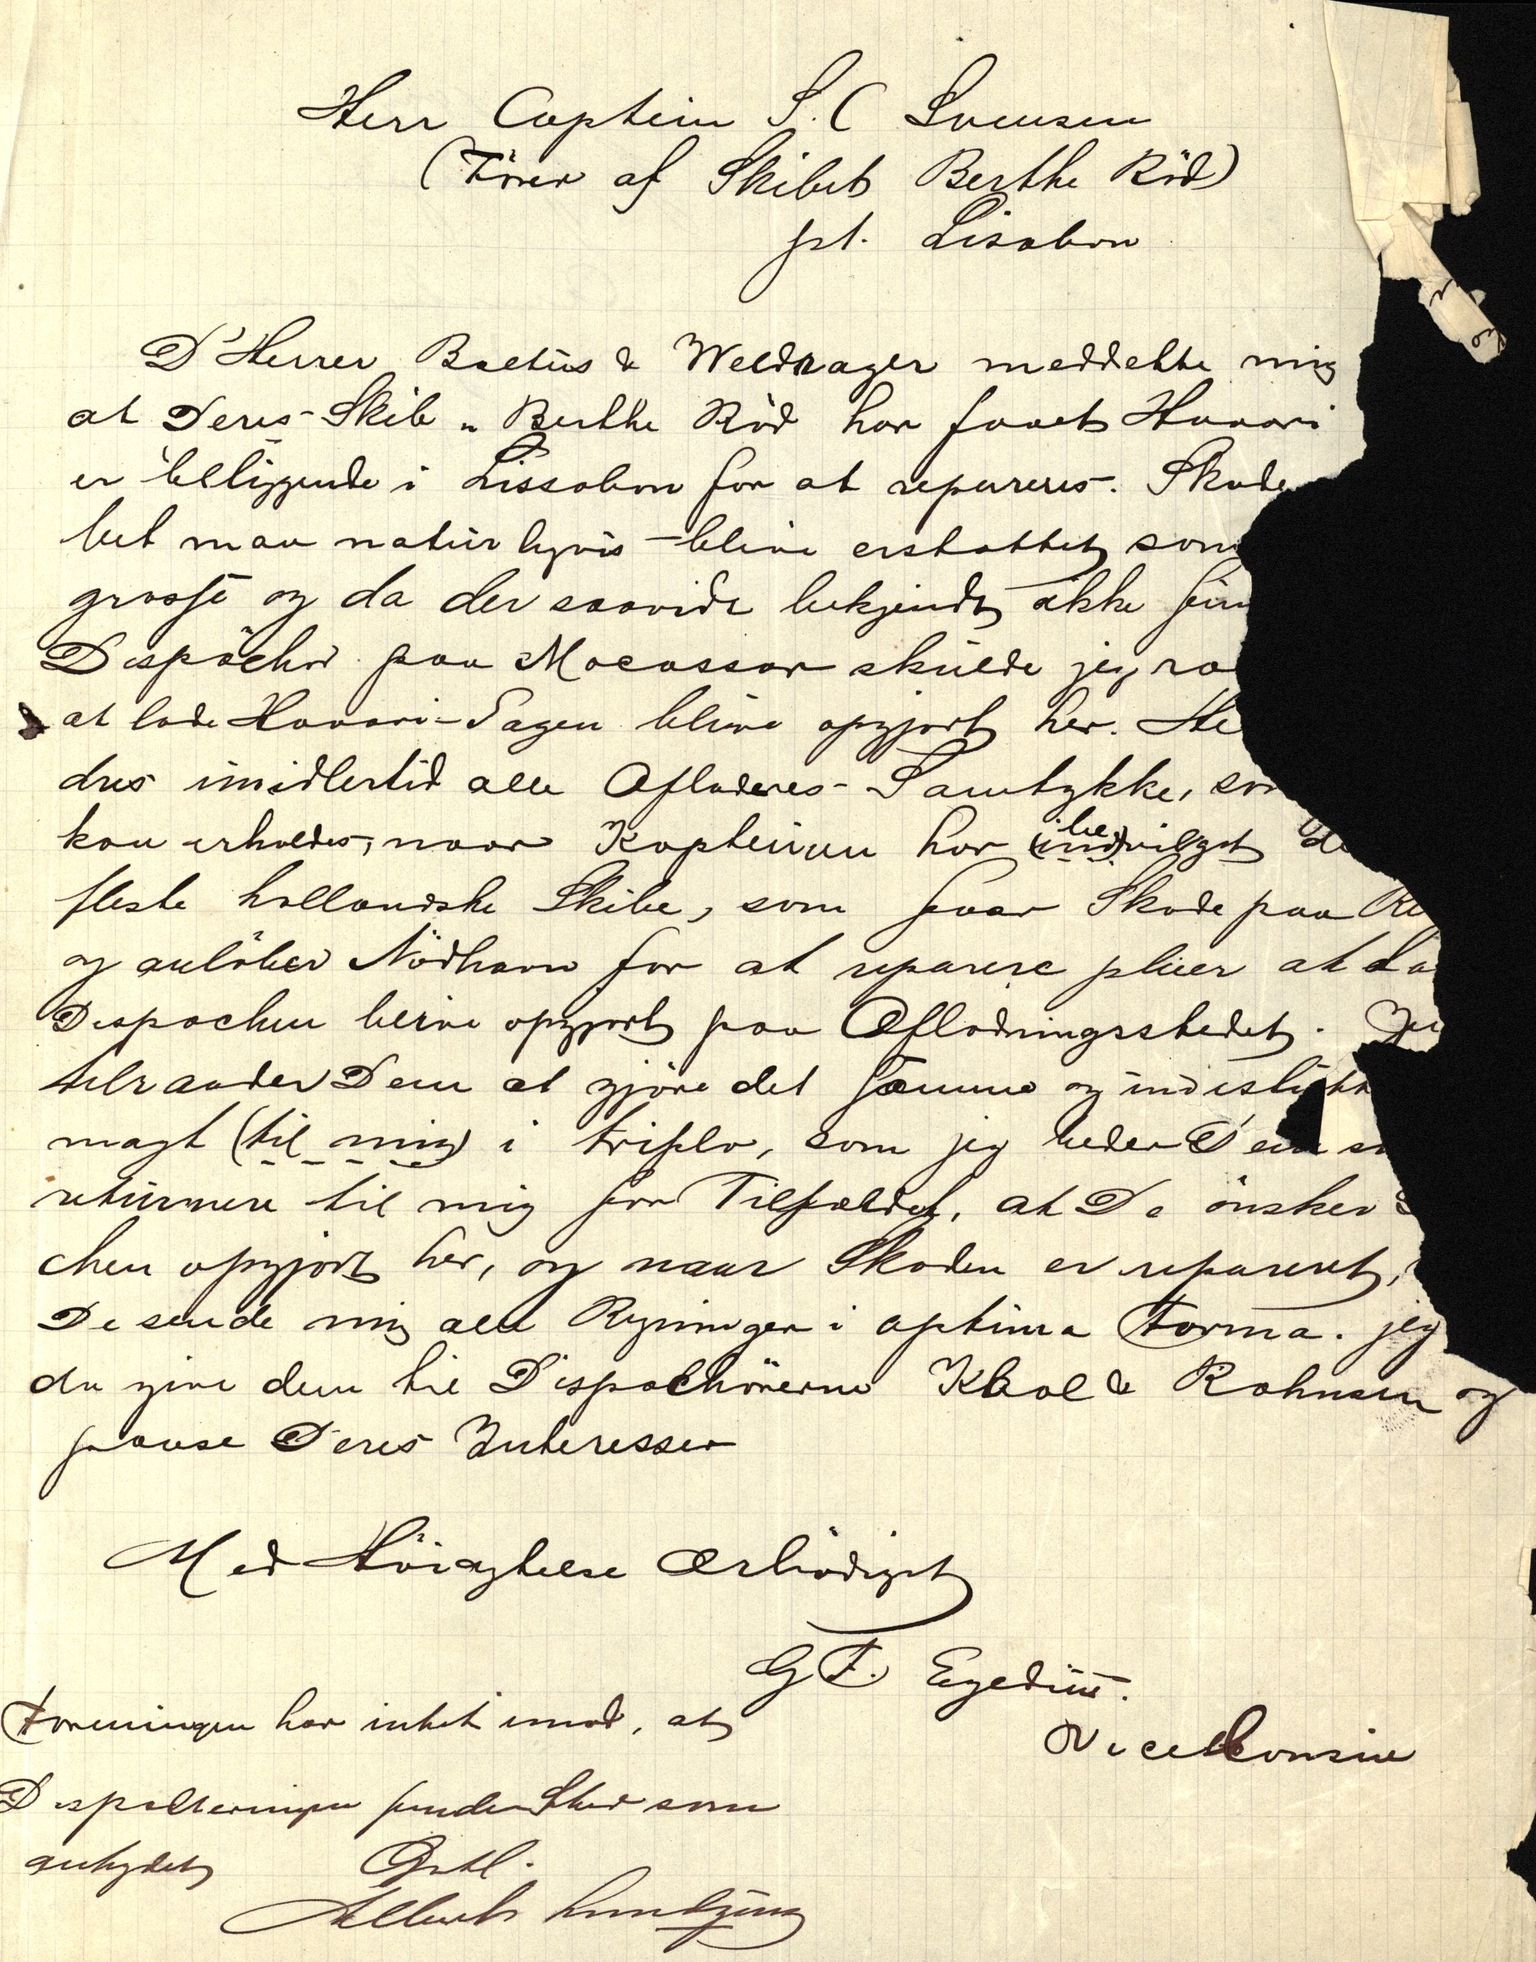 Herr Captein S. C Svensen
(Förer af Skibet Berthe Röd)
pt. Lissabon
D'Herrer Baelüs & Weldrager meddelte mig
at Deres Skib „ Berthe Röd har faaet Havari
er beliggende i Lissabon for at repareres. Skade
bet maa natürligvis blive erstattet som
grosse og da der saavidt bekjendt ikke fin
Dispachör paa Macassar skülde jeg raa
at lade Havari-Sagen blive opgjort her. He
dres imidlertid alle Afladeres Samtykke, som
kan erholdes, naar Kapteinen har (ind)vilget de
fleste hollandske Skibe, som faar Skade paa Re
og anlöber Nödhavn for at reparere pleier at La
Dispachen blive opgjort paa Afladningsstedet. Jeg
tilraader Dem at gjöre det samme og indeslutt
magt (til mig) i triplo, som jeg beder Dem
retürnere til mig for Tilfældet, at De önsker D
chen opgjort her, og naar Skaden er repareret,
De sende mig alle Regninger i optima Forma. jeg
da give dem til Dispachörerne Kbol & Rahusen og
passe Deres Interesser
Med Höiagtelse Ærbödigst
G F. Egedius.
ViceConsül
Foreningen har intet imod, at
Dispacheringen finder Sted som
antydet
Albert